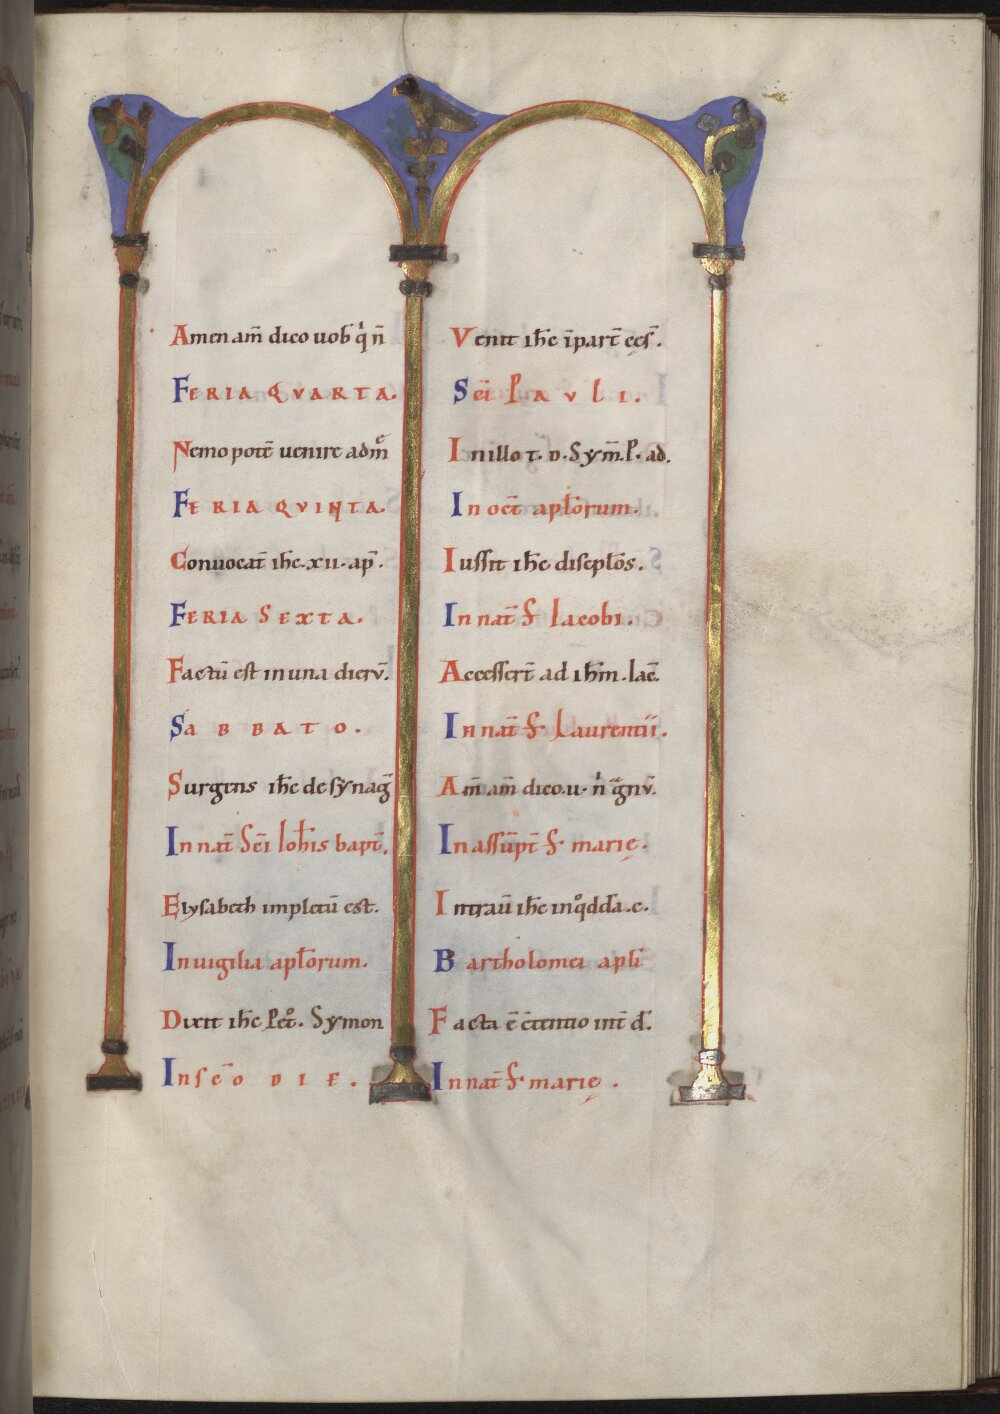 Amen am̄ dico uob q̇ n̄
FERIA QVARTA.
Nemo potē uenire ad mͤ
FERIA QVINTA.
Conuocat̄ ih̄c .xii. ap̄.
FERIA SEXTA.
Factū est in una dierū.
SABBATO.
Surgens ih̄c de synaḡ
In nat̄ Sc̄i Ioh̄is bapt̄.
Elysabeth impletū est.
In uigilia aptōrum.
Dixit ih̄c Pet̊. Symon
In sc̄o DIE.
Venit ih̄c ī part̄ ces̄.
Sc̄i PAVLI.
In illo t. d. Sym̄. P. ad.
In oct̄ aptōrum.
Iussit ih̄c discptōs.
In nat̄ S. Iacobi.
Accesser̄t ad ih̄m. Iac̄.
In nat̄ S. Laurentii.
Am̄ am̄ dico .u. n̍ gnū.
In assūpt̄ S. marię.
Intrau̅ ih̄c in q̊ddā .c.
Bartholomei apłi
Facta ē c̄tentio int̄ d̄.
In nat̄ S. marię.